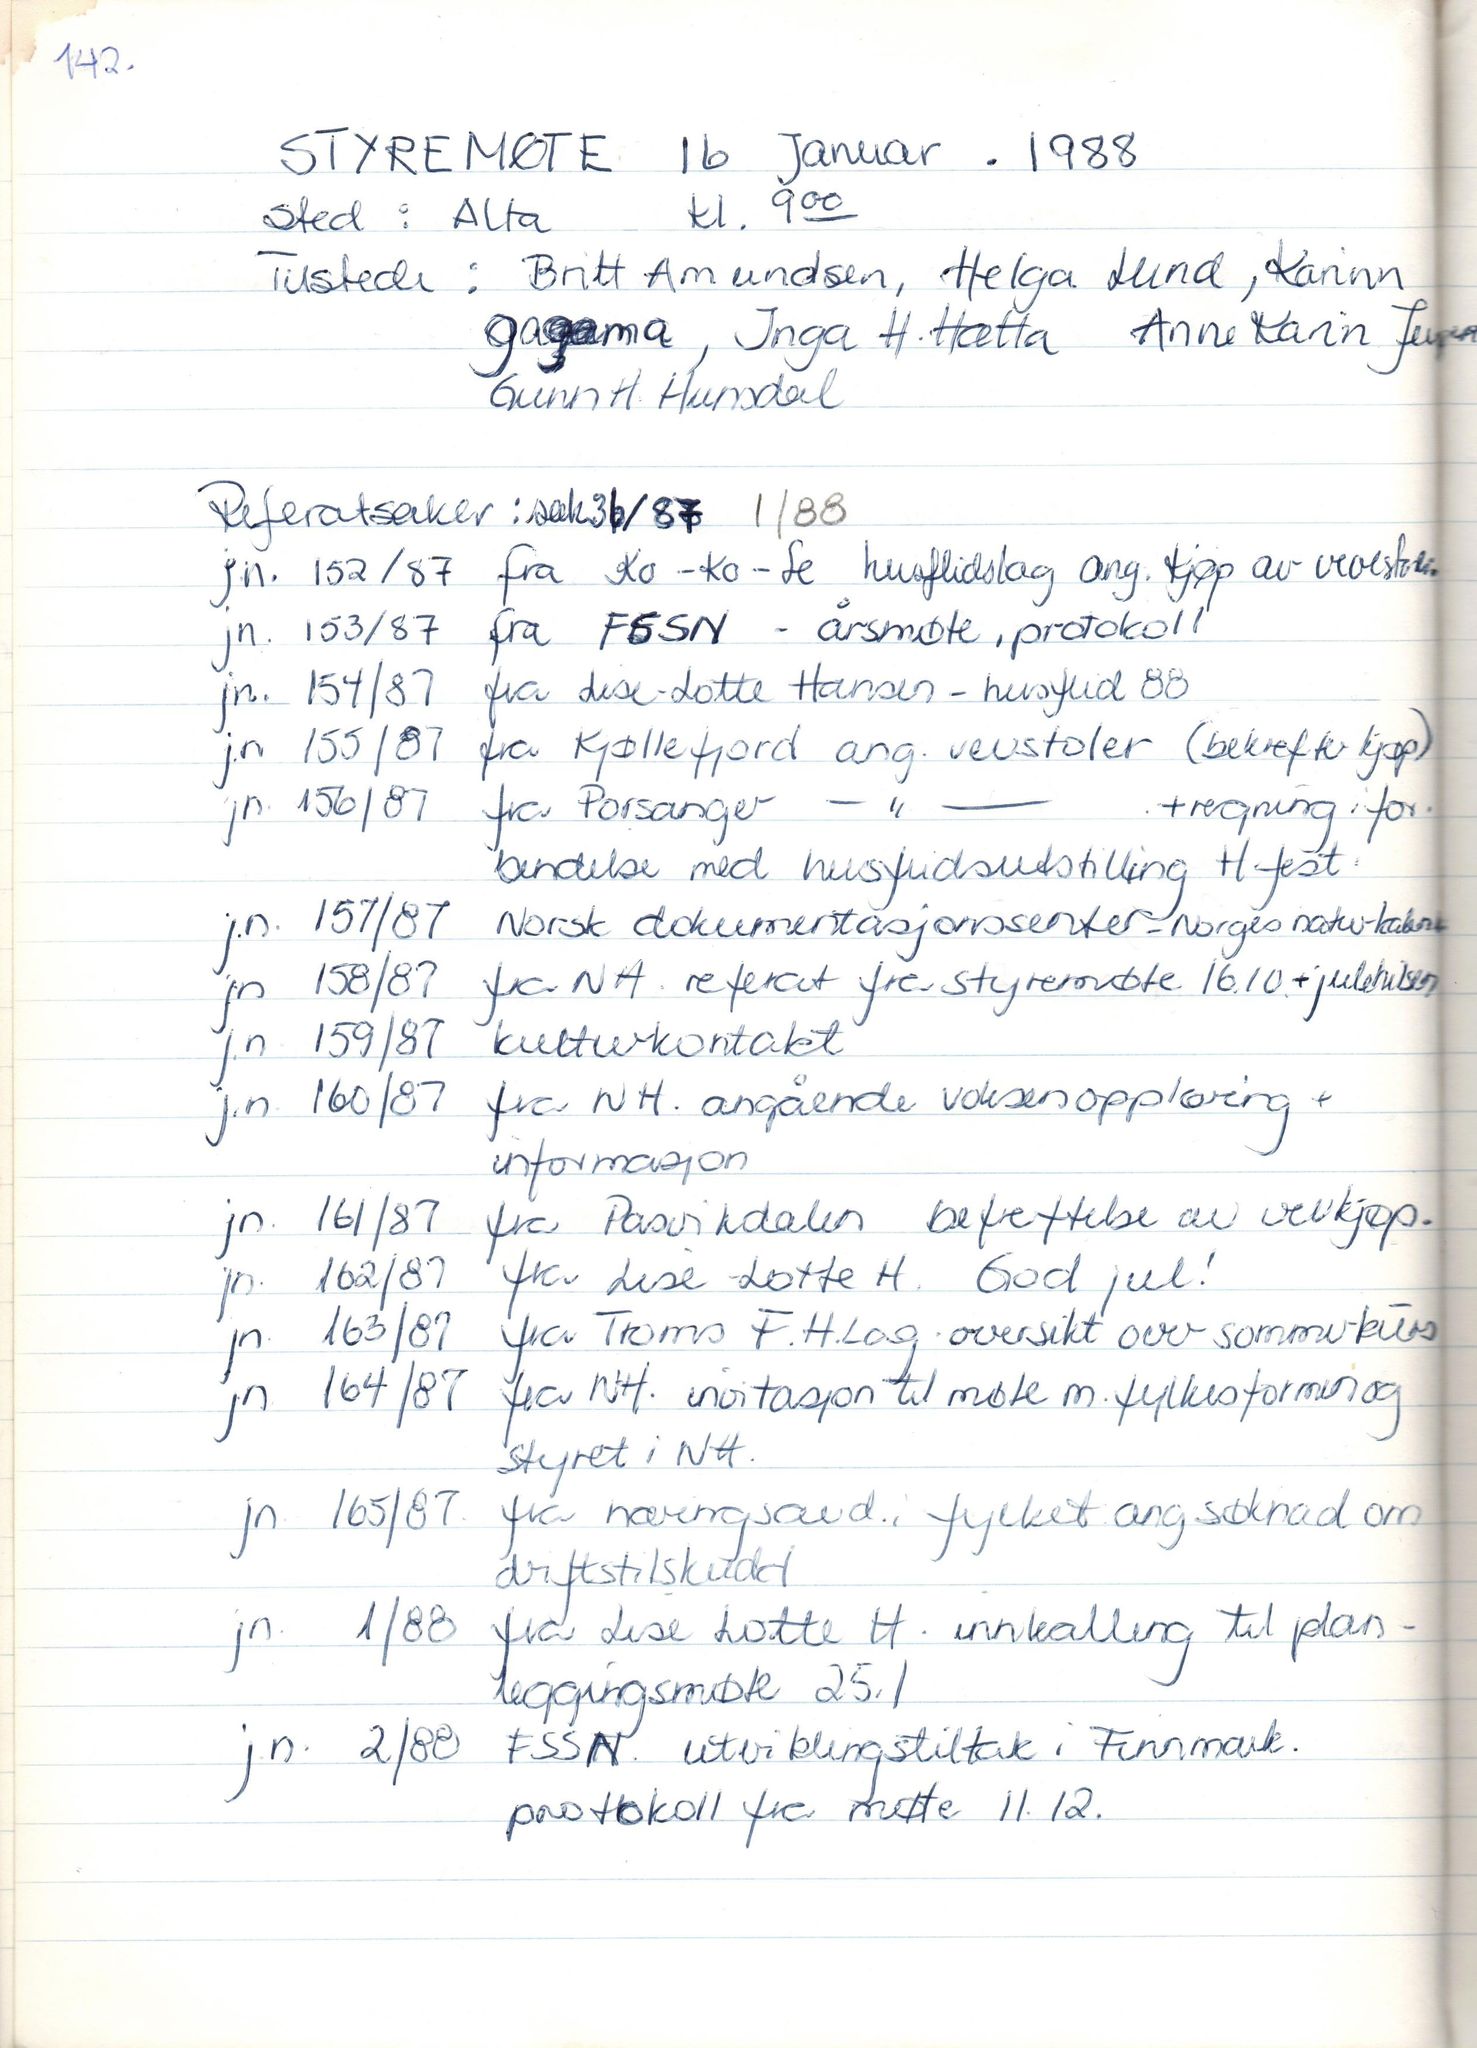 142.
STYREMØTE 16 Januar . 1988
Sted : Alta kl. 9 00
Tilstede : Britt Amundsen, Helga Lund, Karinn
Gagama, Inga H. Hætta Anne Karin
Gunn H. Hunsdal
Referatsaker : sak 36/87 1/88
j.n. 152/87 fra Ko-Ko-Le husflidslag ang. kjøp av vevstoler.
jn. 153/87 fra FSSN - årsmøte, protokoll
jn. 154/87 fra Lise-Lotte Hansen - husflid 88
j.n 155/87 fra Kjøllefjord ang. vevstoler (bekrefter kjøp)
jn. 156/87 fra Porsanger — " — + regning i for.
bindelse med husflidsutstilling H-fest.
j.n. 157/87 Norsk dokumentasjonssenter - Norges natur-
jn 158/87 fra NH. referat fra styremøte 16.10. + julehilsen
j.n 159/87 kulturkontakt
j.n 160/87 fra NH. angående voksenopplæring +
informasjon
jn. 161/87 fra Pasvikdalen bekreftelse av vevkjøp.
jn. 162/87 fra Lise-Lotte H. God jul!
jn. 163/87 fra Troms F.H.Lag. oversikt over sommerkurs
jn 164/87 fra NH. invitasjon til møte m. fylkesformen og
styret i NH.
jn 165/87. fra næringsavd. i fylket ang søknad om
driftstilskudd
jn. 1/88 fra Lise Lotte H. innkalling til plan-
leggingsmøte 25.1
j.n. 2/88 FSSN. utviklingstiltak i Finnmark.
protokoll fra møte 11.12.